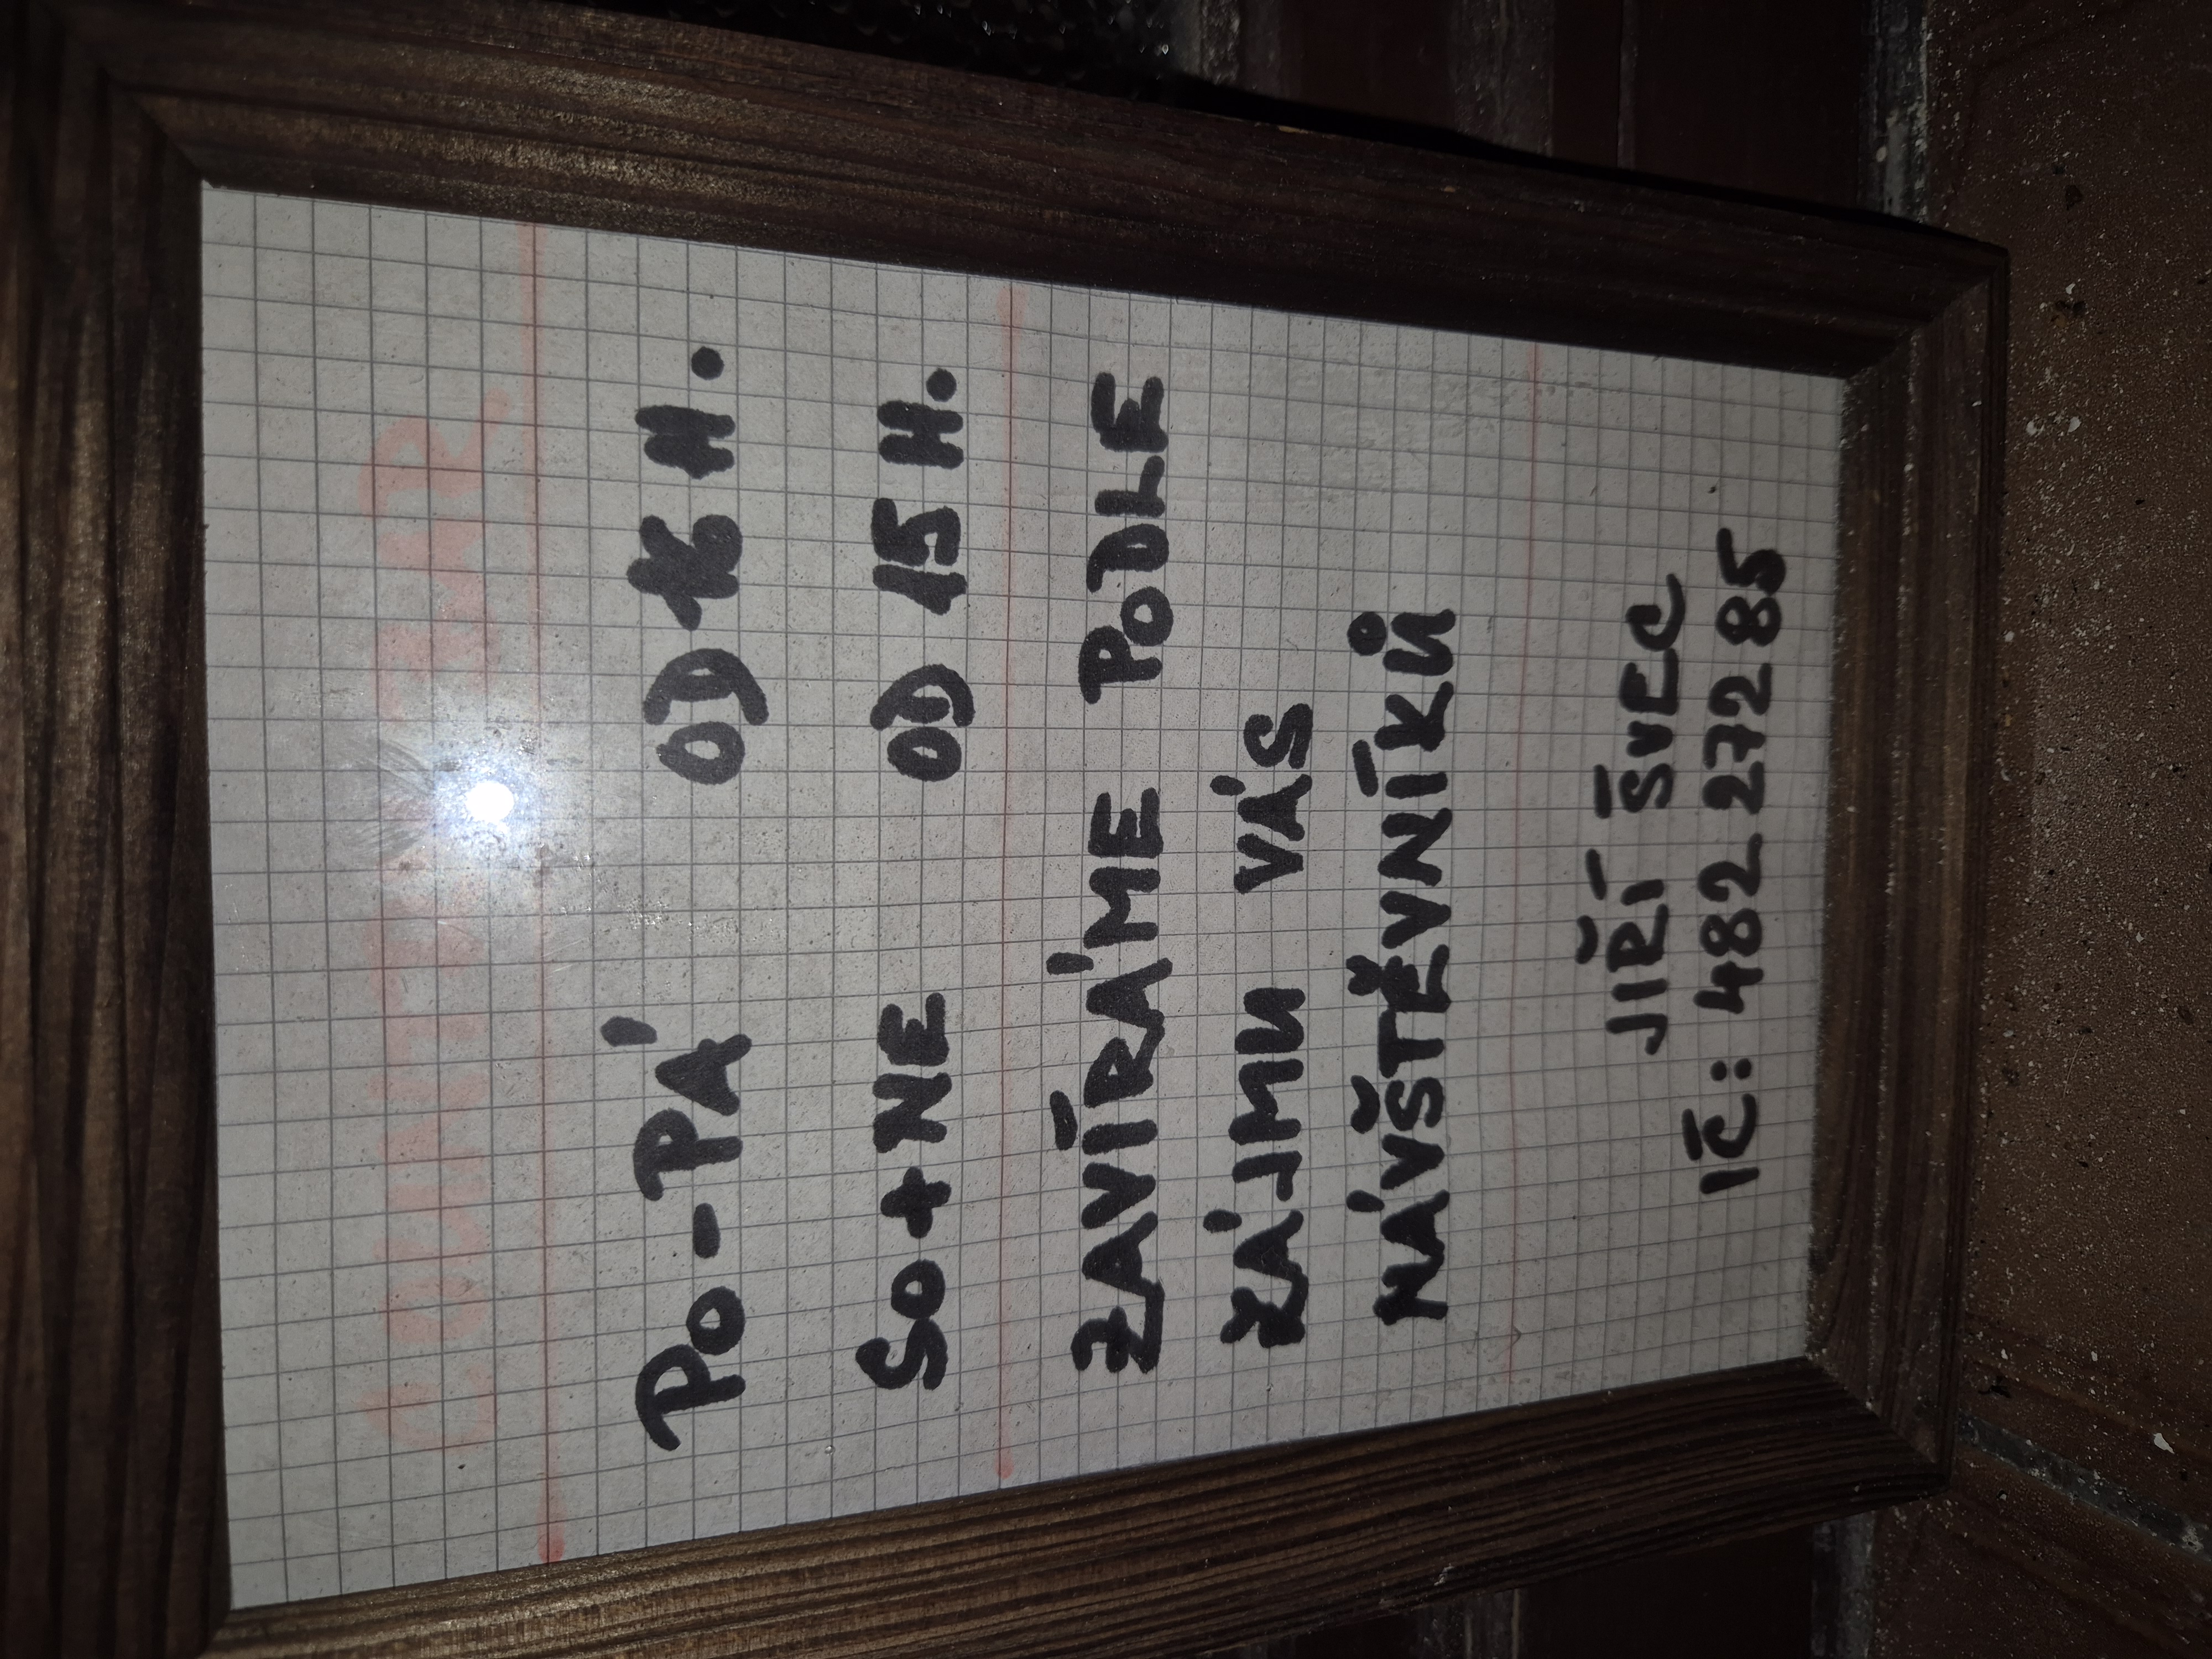 COUNTRY BAR
PO-PÁ OD 16 H.
SO+NE OD 15 H.
ZAVÍRÁME PODLE
ZÁJMU VÁS
NÁVŠTĚVNÍKŮ
JIŘÍ ŠVEC
IČ: 482 272 85